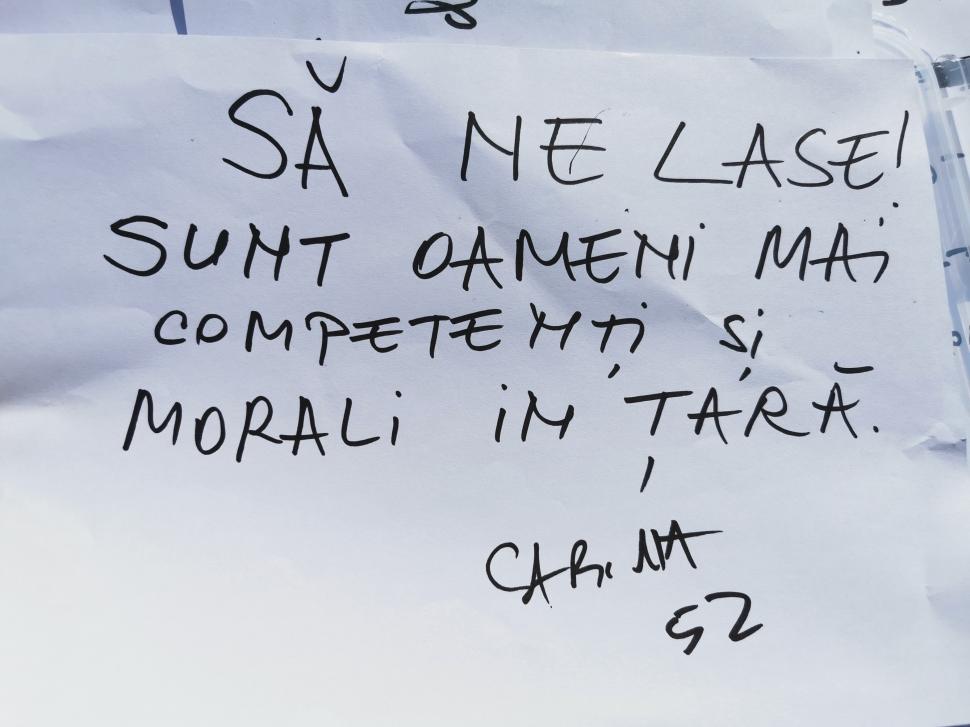 SĂ NE LASE!
SUNT OAMENI MAI
COMPETENȚI ȘI
MORALI IN ȚARĂ.
CARINA
52